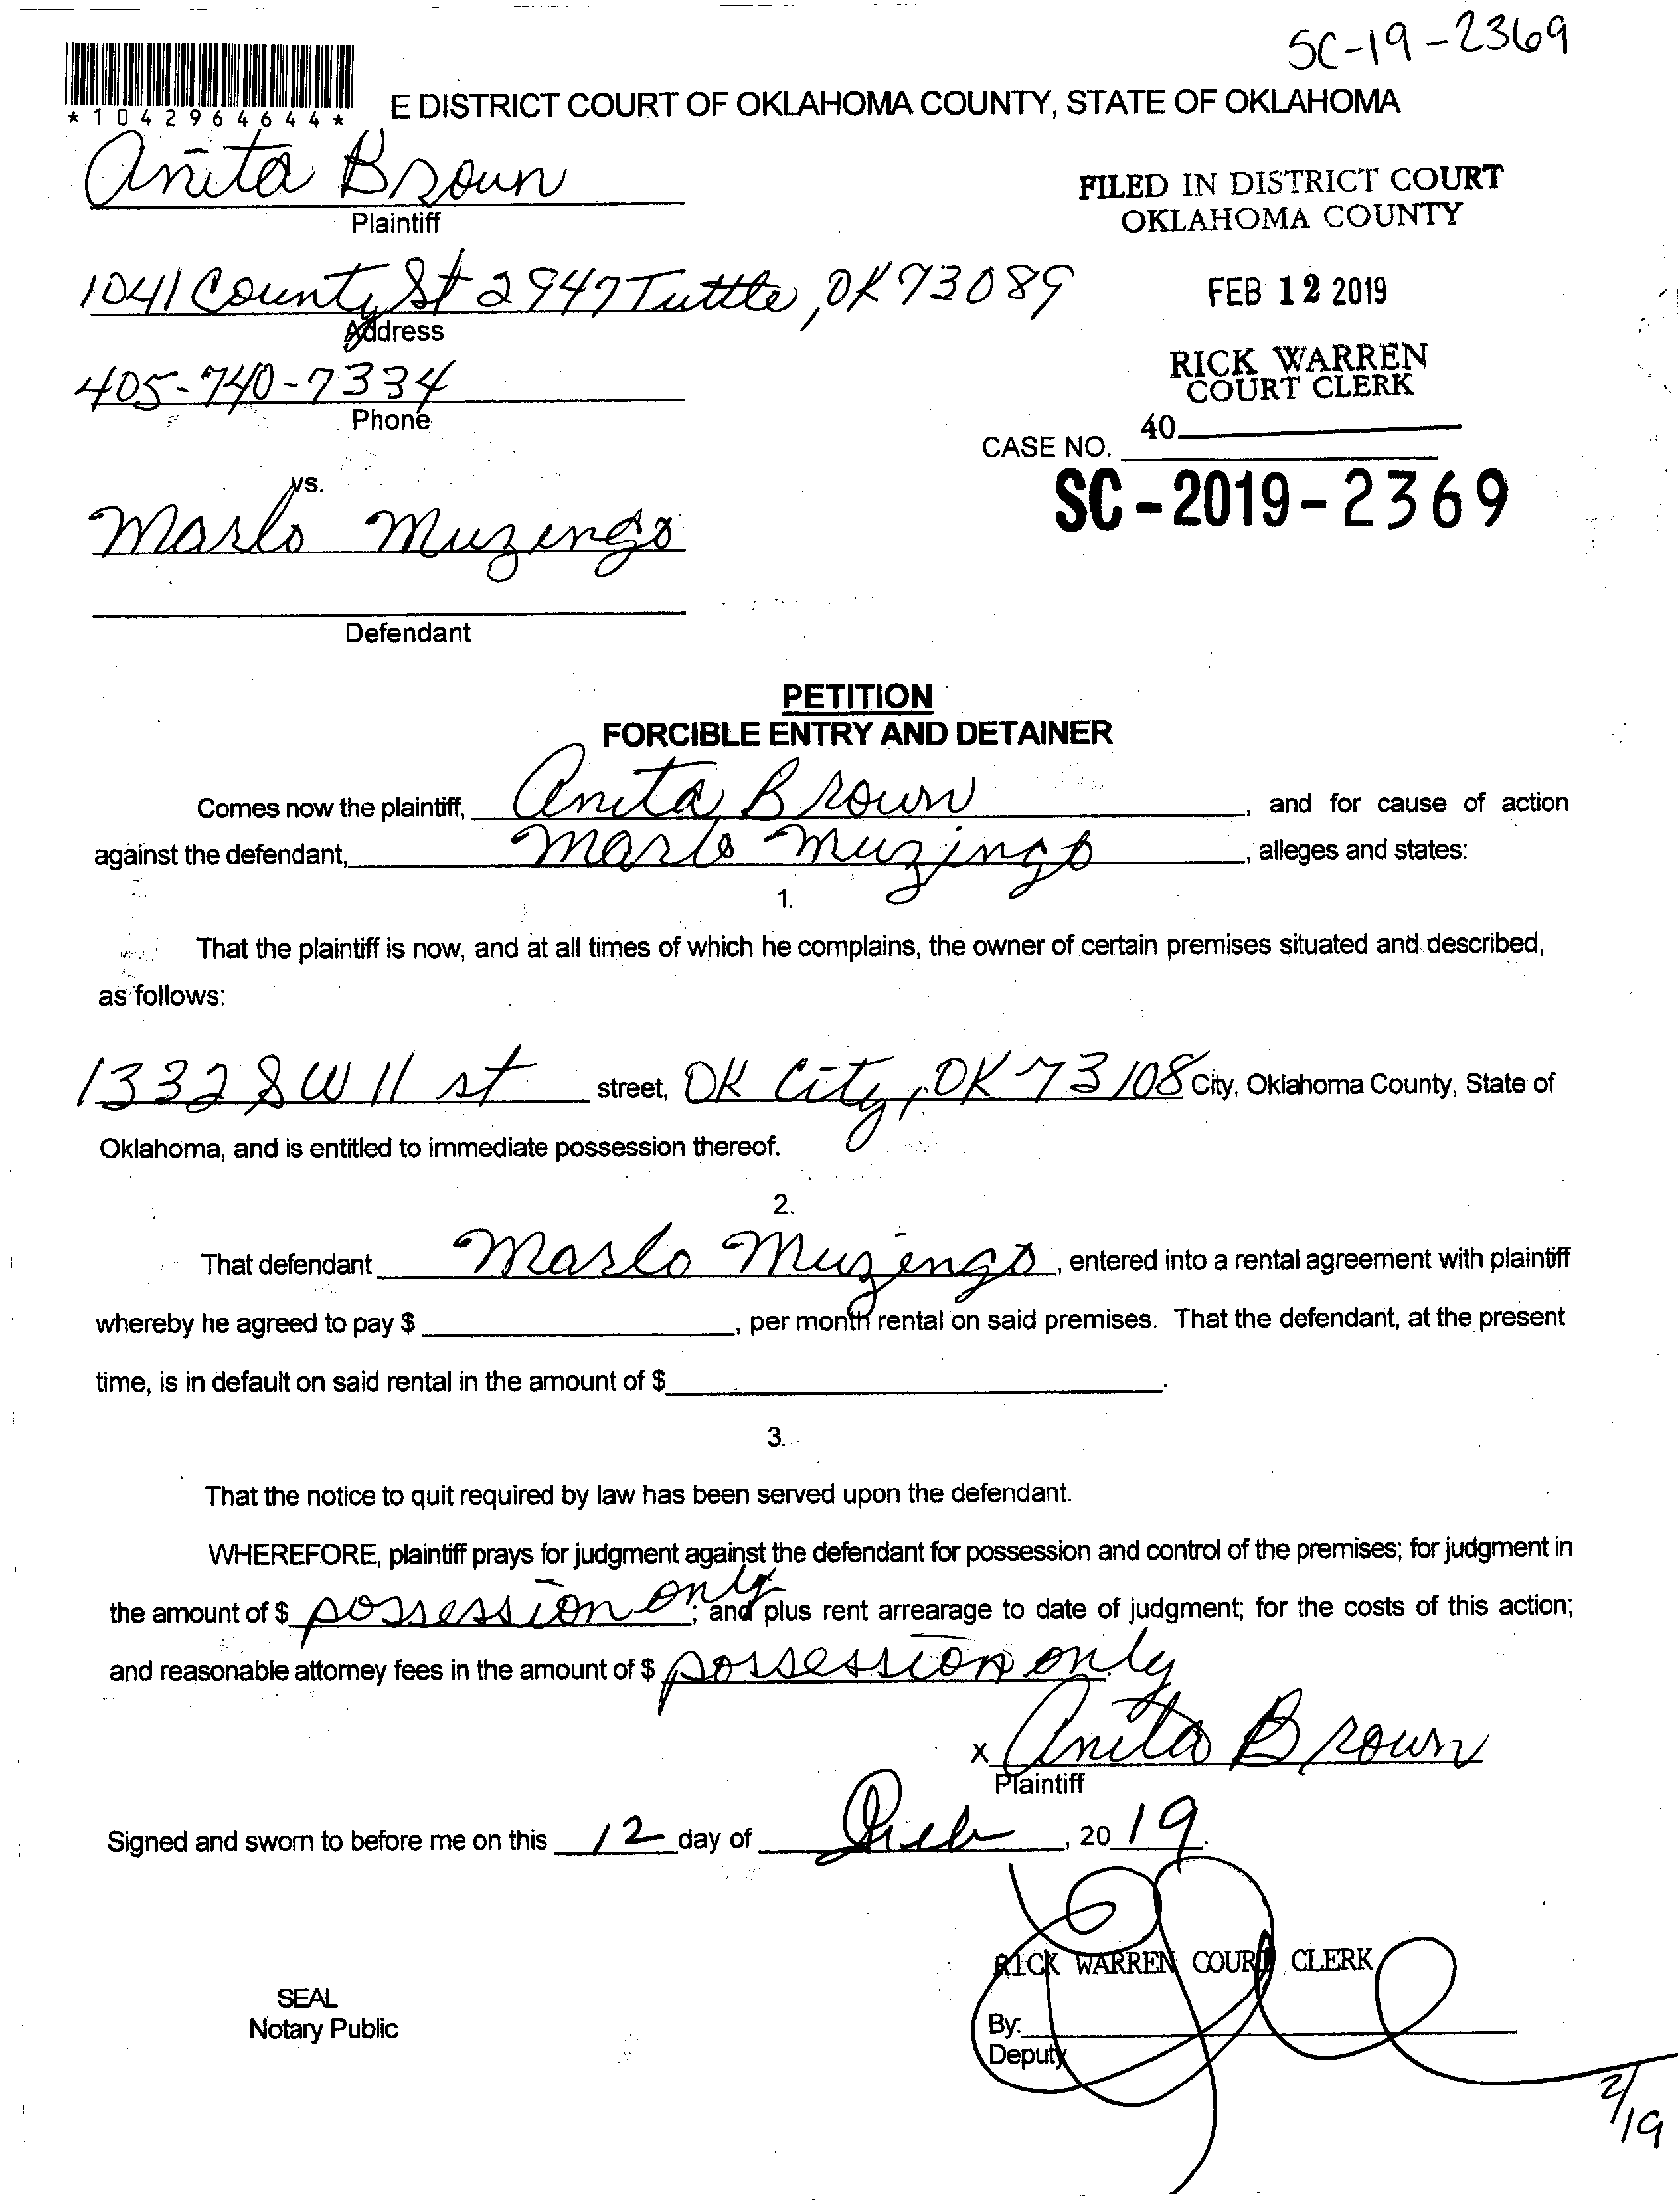 SC-19-2369
*1042964644*
E DISTRICT COURT OF OKLAHOMA COUNTY, STATE OF OKLAHOMA
Anita Brown
Plaintiff
FILED IN DISTRICT COURT
OKLAHOMA COUNTY
1041 County St 2947 Tuttle, OK 73089
Address
FEB 12 2019
405-740-7334
Phone
RICK WARREN
COURT CLERK
40
CASE NO.
SC-2019-2369
vs.
Marlo Muzingo
Defendant
PETITION
FORCIBLE ENTRY AND DETAINER
Comes now the plaintiff, Anita Brown, and for cause of action
against the defendant, Marlo Muzingo, alleges and states:
1.
That the plaintiff is now, and at all times of which he complains, the owner of certain premises situated and described,
as follows:
1332 SW 11 st street, OK City, OK 73108 City, Oklahoma County, State of
Oklahoma, and is entitled to immediate possession thereof.
2.
That defendant Marlo Muzingo, entered into a rental agreement with plaintiff
whereby he agreed to pay $ , per month rental on said premises. That the defendant, at the present
time, is in default on said rental in the amount of $ .
3.
That the notice to quit required by law has been served upon the defendant.
WHEREFORE, plaintiff prays for judgment against the defendant for possession and control of the premises; for judgment in
the amount of $ possession only; and plus rent arrearage to date of judgment; for the costs of this action;
and reasonable attorney fees in the amount of $ possession only
x Anita Brown
Plaintiff
Signed and sworn to before me on this 12 day of Feb, 2019.
RICK WARREN COURT CLERK
SEAL
Notary Public
By:
Deputy
2/19